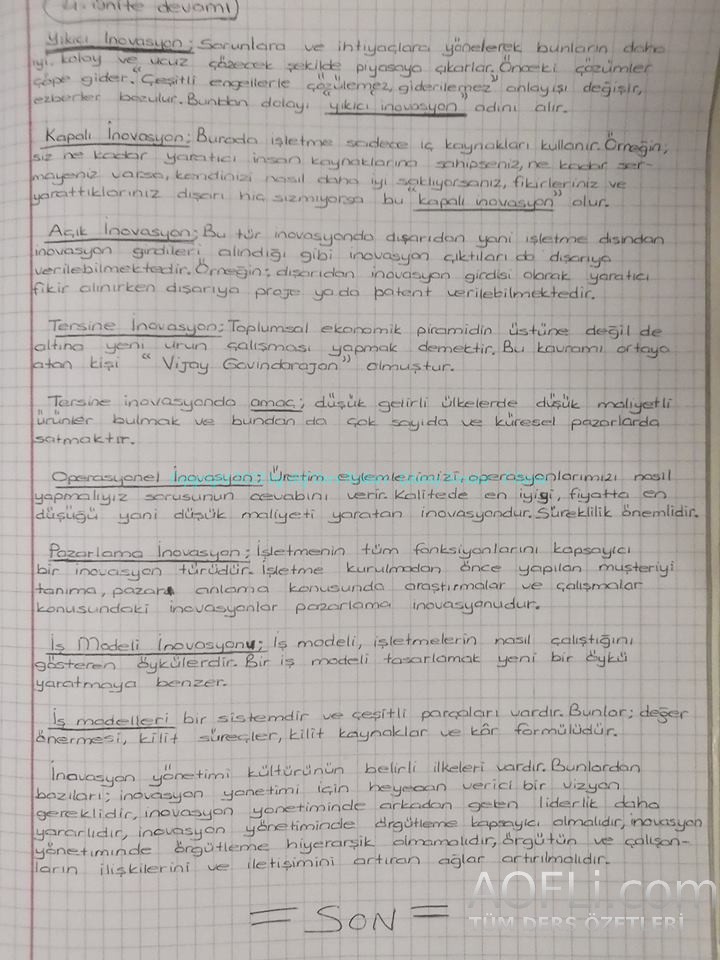 4. ünite devamı
Yıkıcı İnovasyon; Sorunlara ve ihtiyaçlara yönelerek bunların daha
iyi, kolay ve ucuz çözecek şekilde piyasaya çıkarlar. Önceki çözümler
çöpe gider. Çeşitli engellerle "çözülemez, giderilemez" anlayışı değişir,
ezberler bozulur. Bundan dolayı "yıkıcı inovasyon" adını alır.
Kapalı İnovasyon; Burada işletme sadece iç kaynakları kullanır. Örneğin;
siz ne kadar yaratıcı insan kaynaklarına sahipseniz, ne kadar ser-
mayeniz varsa, kendinizi nasıl daha iyi saklıyorsanız, fikirleriniz ve
yarattıklarınız dışarı hiç sızmıyorsa bu "kapalı inovasyon" olur.
Açık İnovasyon; Bu tür inovasyonda dışarıdan yani işletme dışından
inovasyon girdileri alındığı gibi inovasyon çıktıları da dışarıya
verilebilmektedir. Örneğin; dışarıdan inovasyon girdisi olarak yaratıcı
fikir alınırken dışarıya proje ya da patent verilebilmektedir.
Tersine İnovasyon; Toplumsal ekonomik piramidin üstüne değil de
altına yeni ürün çalışması yapmak demektir. Bu kavramı ortaya
atan kişi "Vijay Govindarajan" olmuştur.
Tersine inovasyonda amaç; düşük gelirli ülkelerde düşük maliyetli
ürünler bulmak ve bundan da çok sayıda ve küresel pazarlarda
satmaktır.
Operasyonel İnovasyon; Üretim eylemlerimizi, operasyonlarımızı nasıl
yapmalıyız sorusunun cevabını verir. Kalitede en iyisi, fiyatta en
düşüğü yani düşük maliyeti yaratan inovasyondur. Süreklilik önemlidir.
Pazarlama İnovasyon; İşletmenin tüm fonksiyonlarını kapsayıcı
bir inovasyon türüdür. İşletme kurulmadan önce yapılan müşteriyi
tanıma, pazarı anlama konusunda araştırmalar ve çalışmalar
konusundaki inovasyonlar pazarlama inovasyonudur.
İş Modeli İnovasyonu; İş modeli, işletmelerin nasıl çalıştığını
gösteren öykülerdir. Bir iş modeli tasarlamak yeni bir öykü
yaratmaya benzer.
İş modelleri bir sistemdir ve çeşitli parçaları vardır. Bunlar; değer
önermesi, kilit süreçler, kilit kaynaklar ve kâr formülüdür.
İnovasyon yönetimi kültürünün belirli ilkeleri vardır. Bunlardan
bazıları; inovasyon yönetimi için heyecan verici bir vizyon
gereklidir, inovasyon yönetiminde arkadan gelen liderlik daha
yararlıdır, inovasyon yönetiminde örgütleme kapsayıcı olmalıdır, inovasyon
yönetiminde örgütleme hiyerarşik olmamalıdır, örgütün ve çalışan-
ların ilişkilerini ve iletişimini artıran ağlar artırılmalıdır.
= SON =
AOFLi.com
TÜM DERS ÖZETLERİ